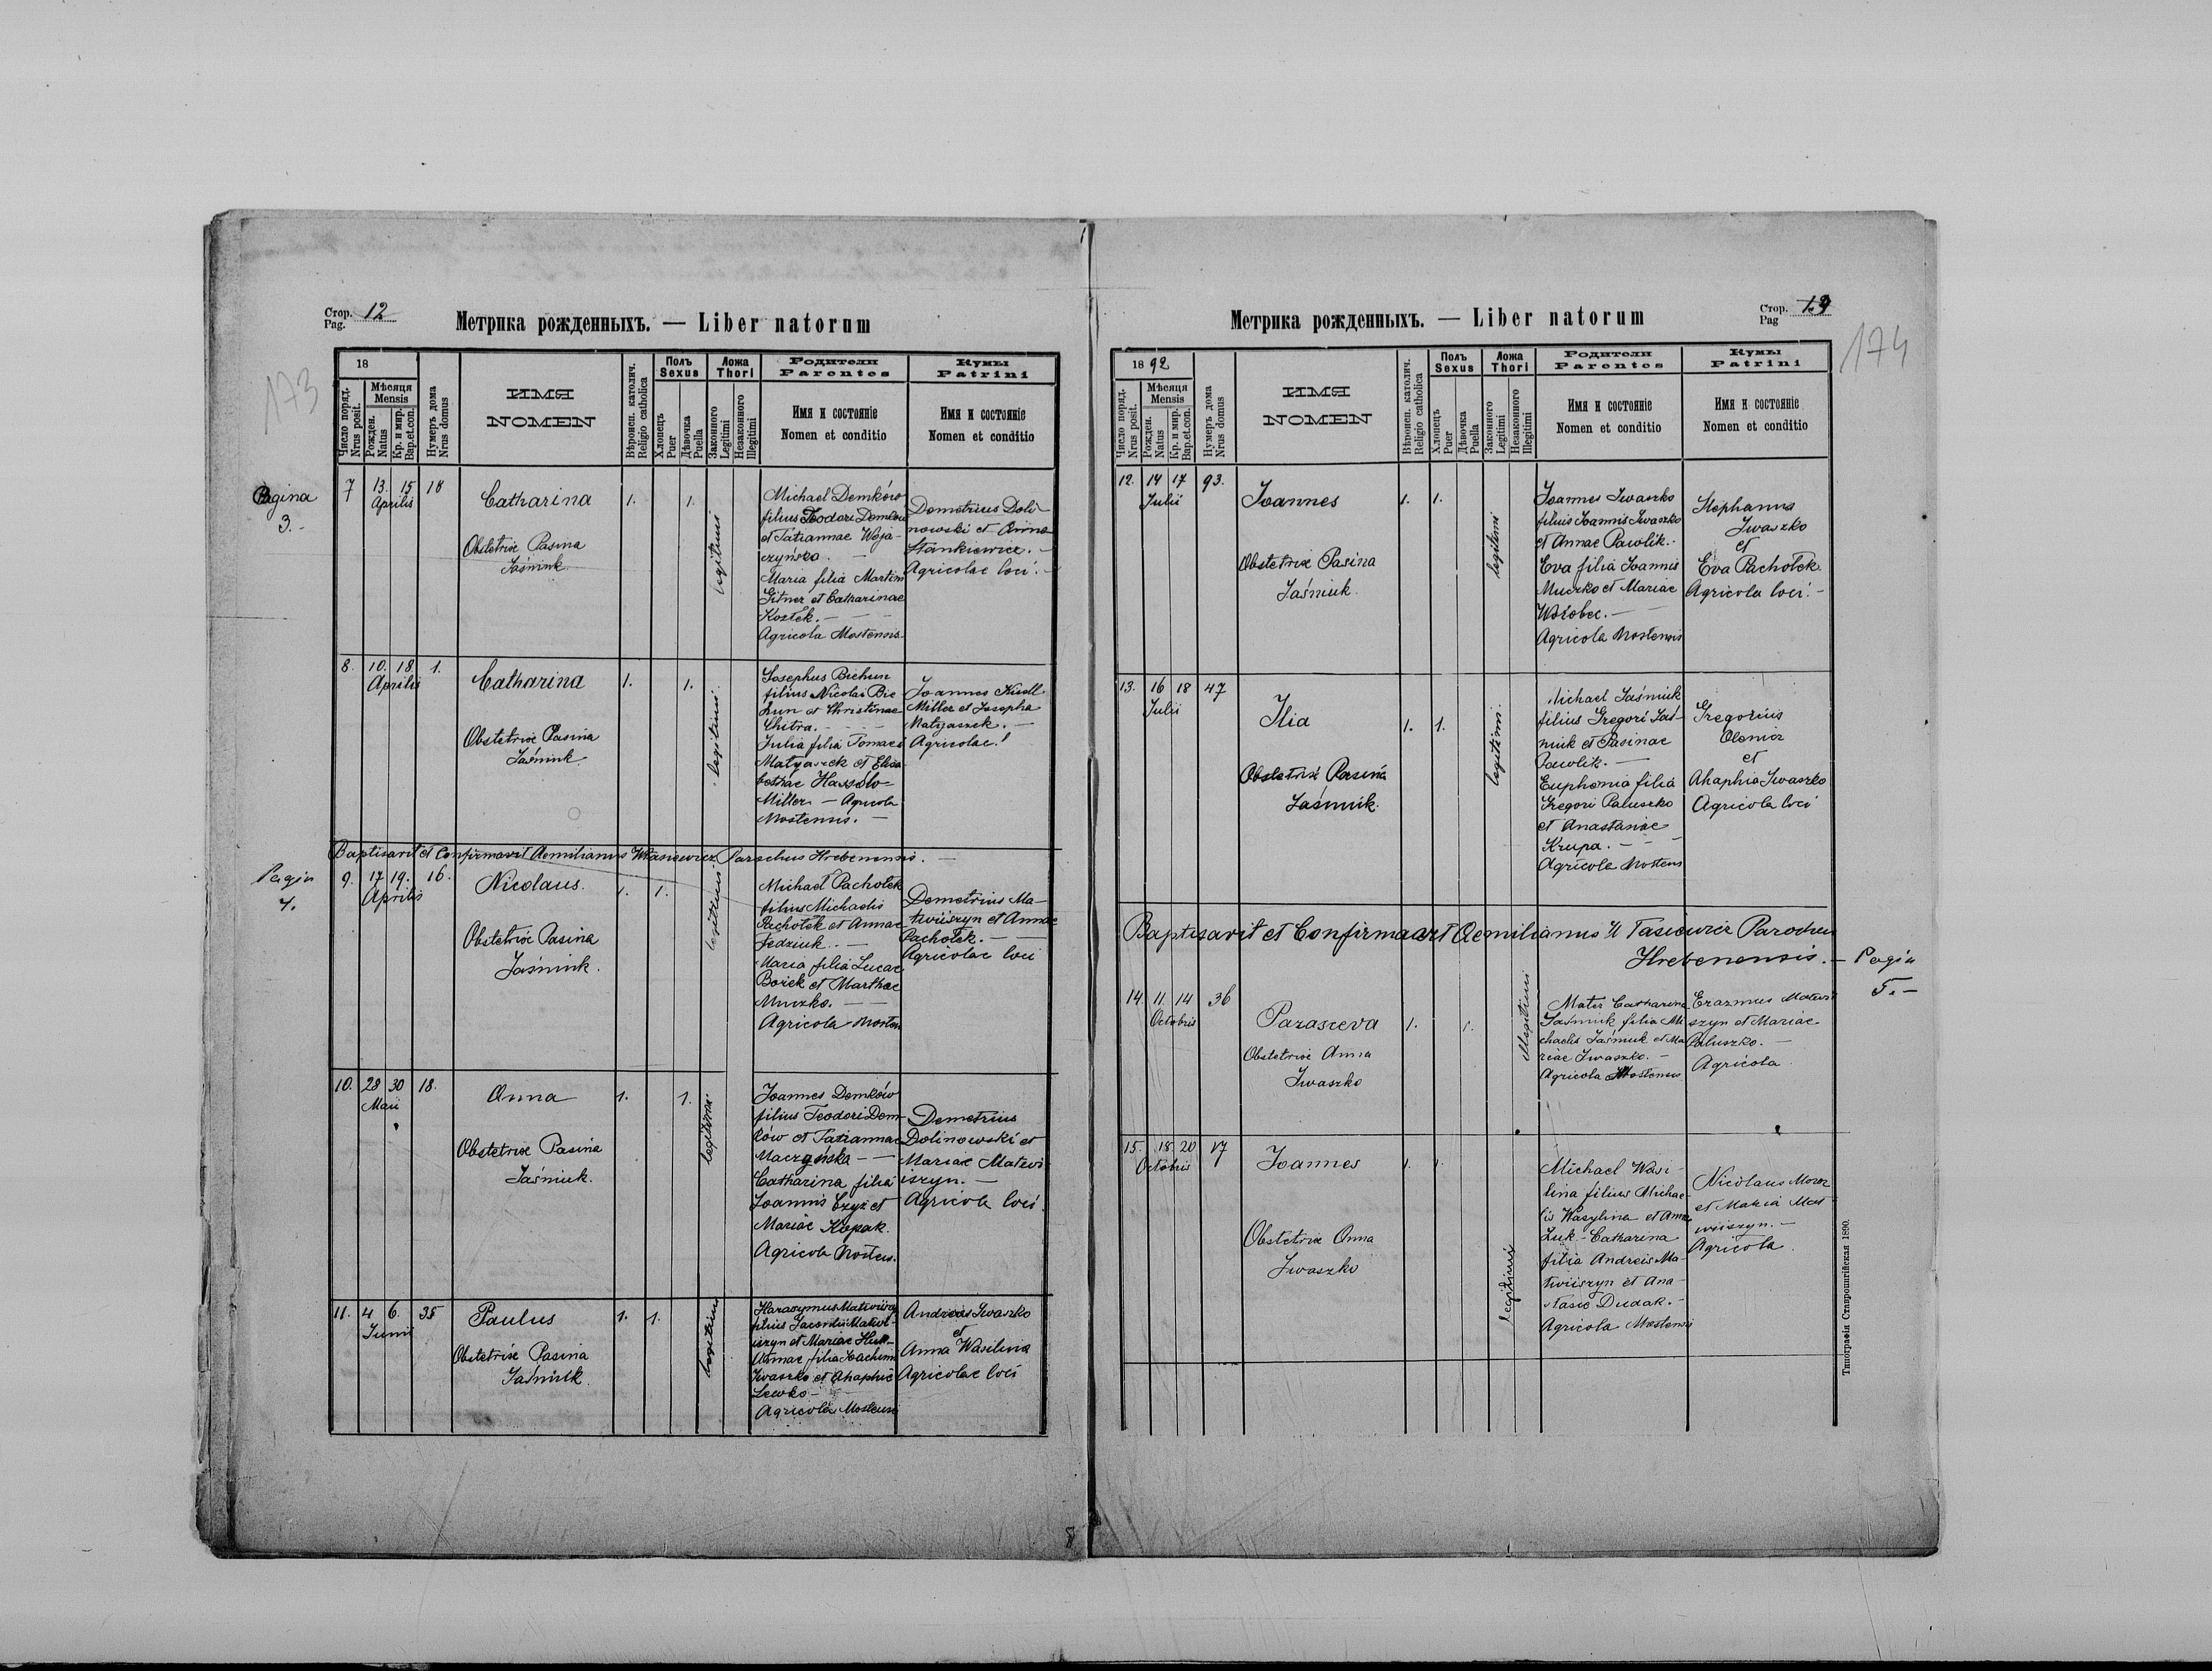 Стор. 12
Pag.
Метрика рожденныхъ. — Liber natorum
173
18
Число поряд.
Nrus posit.
Мѣсяця
Mensis
Рожден.
Natus
Кр. и мир.
Bap.et.con.
Нумеръ дома
Nrus domus
ИМЯ
NOMEN
Вѣроисп. католич.
Religio catholica
Полъ
Sexus
Хлопецъ
Puer
Дѣвочка
Puella
Ложа
Thori
Законного
Legitimi
Незаконного
Illegitimi
Родители
Parentes
Имя и состояніе
Nomen et conditio
Кумы
Patrini
Имя и состояніе
Nomen et conditio
Pagina
3.-
7 13. 15 18
Aprilis
Catharina
Obstetrix Pasina
Jaśniuk
1. 1.
legitimi
Michael Demków
filius Teodori Demków
et Tatiannae Woja-
czyńska. —
Maria filia Martini
Gitner et Catharinae
Kostek. —
Agricola Mostensis
Demetrius Doli-
nowski et Anna
Stankiewicz. -
Agricolae loci. -
8. 10. 18. 1.
Aprilis
Catharina
Obstetrix Pasina
Jaśniuk
1. 1.
legitimi
Josephus Biehun
filius Nicolai Bie
hun et Christinae
Chitra. —
Julia filia Tomae
Matyaszek et Elisa-
bethae
Miller — Agricola
Mostensis. —
Joannes
Miller et Josepha
Matyaszek. —
Agricolae!
Baptisavit et Confirmavit Aemilianus Wtasiewicz Parochus Hrebenensis. —
Pagin
4.
9. 17 19. 16.
Aprilis
Nicolaus.
Obstetrix Pasina
Jaśniuk.
1. 1.
legitimi
Michael Pachołek
filius Michaelis
Pachołek et Annae
Fedziuk. —
Maria filia Lucae
Boiek et Marthae
Muszko. —
Agricola Mosten
Demetrius Ma-
twiiszyn et Annae
Pachołek. —
Agricolae loci
10. 28 30 18.
Maii
Anna
Obstetrix Pasina
Jaśniuk.
1. 1.
legitimi
Joannes Demków
filius Teodori Dem-
ków et Tatiannae
Maczyńska —
Catharina filia
Joannis Czyz et
Mariae Kopak.
Agricola Mostens.
Demetrius
Dolinowski et
Mariae Matwi-
iszyn. —
Agricola loci.
11. 4 6 35
Junii
Paulus
Obstetrix Pasina
Jaśniuk.
1. 1.
legitimi
Harasymus Matwiiszyn
filius Matwi-
iszyn et Mariae
filia Joachimi
Iwaszko et Ahaphie
Lewko —
Agricola Mostensis
Andreas Iwaszko
et
Anna Wasilina
Agricolae loci
Метрика рожденныхъ. — Liber natorum
Стор. 13
Pag
174
1892
Число поряд.
Nrus posit.
Мѣсяця
Mensis
Рожден.
Natus
Кр. и мир.
Bap.et.con.
Нумеръ дома
Nrus domus
ИМЯ
NOMEN
Вѣроисп. католич.
Religio catholica
Полъ
Sexus
Хлопецъ
Puer
Дѣвочка
Puella
Ложа
Thori
Законного
Legitimi
Незаконного
Illegitimi
Родители
Parentes
Имя и состояніе
Nomen et conditio
Кумы
Patrini
Имя и состояніе
Nomen et conditio
12. 14 17 93.
Julii
Joannes
Obstetrix Pasina
Jaśniuk.
1. 1.
legitimi
Joannes Iwaszko
filius Joannis Iwaszko
et Annae Pawlik. -
Eva filia Joannis
Muszko et Mariae
Worobec. —
Agricola Mostensis
Stephanus
Iwaszko
et
Eva Pachołek
Agricola loci. -
13. 16 18 47
Julii
Ilia
Obstetrix Pasina
Jaśniuk.
1. 1.
legitimi.
Michael Jaśniuk
filius Gregori Jaś-
niuk et Pasinae
Pawlik. —
Euphemia filia
Gregori Paluszko
et Anastasiae
Krupa. —
Agricola Mostens
Gregorius
et
Ahaphia Iwaszko
Agricola loci
Baptisavit et Confirmavit Aemilianus Wtasiewicz Parochus
Hrebenensis. —
Pagin
5. —
14. 11. 14 36
Octobris
Parasceva
Obstetrix Anna
Iwaszko
1. 1.
illegitimi
Mater Catharina
Jaśniuk filia Mi
chaelis Jaśniuk et Ma
riae Iwaszko. —
Agricola Mostensis
Erazmus Matwii
szyn et Mariae
Paluszko. —
Agricola
15. 18. 20 17
Octobris
Joannes
Obstetrix Anna
Iwaszko
1. 1.
legitimi
Michael Wasi-
lina filius Michae-
lis Wasylina et Annae
Żuk - Catharina
filia Andreis Ma-
twiiszyn et Ana-
stasie Dudak. -
Agricola Mostensis
Nicolaus Moroz
et Maria Mat
wiiszyn. —
Agricola.
Типографія Ставропигійская 1890.